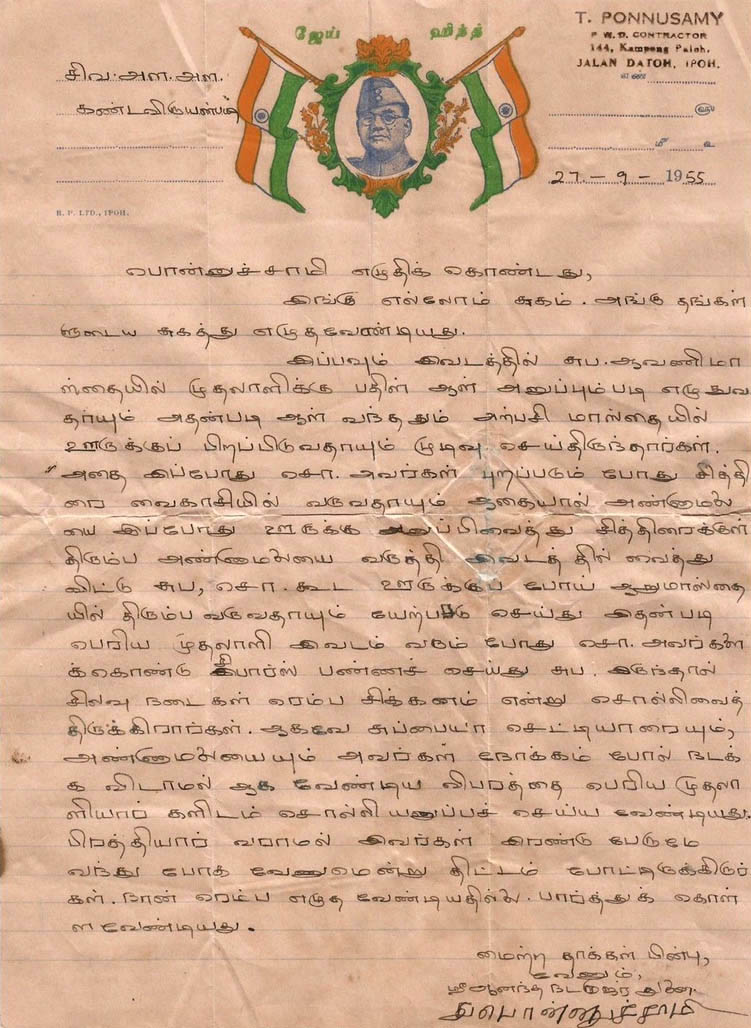 ஜேய் ஹிந்த்
T. PONNUSAMY
P. W. D. CONTRACTOR
144, Kampong Paloh,
JALAN DATOH, IPOH.
சிவ. அள. அள.
கண்டவிருயன்பட்டி
27 - 9 - 1955
R. P. LTD., IPOH.
பொன்னுச்சாமி எழுதிக் கொண்டது,
இங்கு எல்லோம் சுகம். அங்கு தங்கள்
ளுடைய சுகத்து எழுதவேண்டியது.
இப்பவும் இவடத்தில் சுப. ஆவணிமா
ஸ்தையில் முதலாளிக்கு பதிள் ஆள் அனுப்பும்படி எழுதுவ
தாயும் அதன்படி ஆள் வந்ததும் அற்பசி மாஸ்தையில்
ஊருக்குப் பிறப்பிடுவதாயும் முடிவு செய்திருந்தார்கள்.
அதை இப்போது சொ. அவர்கள் புறப்படும் போது சித்தி
ரை வைகாசியில் வருவதாயும் ஆதையால் அண்ணாமலை
யை இப்போது ஊருக்கு அனுப்பிவைத்து சித்திரைக்குள்
திரும்ப அண்ணாமலையை வருத்தி இவடத்தில் வைத்து
விட்டு சுப, சொ. கூட ஊருக்குப் போய் ஆறுமாஸ்தை
யில் திரும்ப வருவதாயும் யேற்பாடு செய்து இதன்படி
பெரிய முதலாளி இவடம் வரும் போது சொ. அவர்களை
க்கொண்டு சிபார்ஸ் பண்ணச் செய்து சுப. இருந்தால்
சிலவு நடைகள் ரெம்ப சிக்கனம் என்று சொல்லிவைத்
திருக்கிறார்கள். ஆகவே சுப்பையா செட்டியாரையும்,
அண்ணாமலையையும் அவர்கள் நோக்கம் போல் நடக்
க விடாமல் ஆக வேண்டிய விபரத்தை பெரிய முதலா
ளியார் களிடம் சொல்லி யனுப்பச் செய்ய வேண்டியது.
பிரத்தியார் வராமல் இவர்கள் இரண்டு பேடுமே
வந்து போக வேணுமென்று திட்டம் போட்டிருக்கிறார்
கள். நான் ரெம்ப எழுத வேண்டியதில்லை. பார்த்துக் கொள்
ள வேண்டியது.
மைற்ற தாக்கள் பின்பு,
வேணும்,
ஸ்ரீஆனந்த நடராஜர் துணை.
பொன்னுச்சாமி